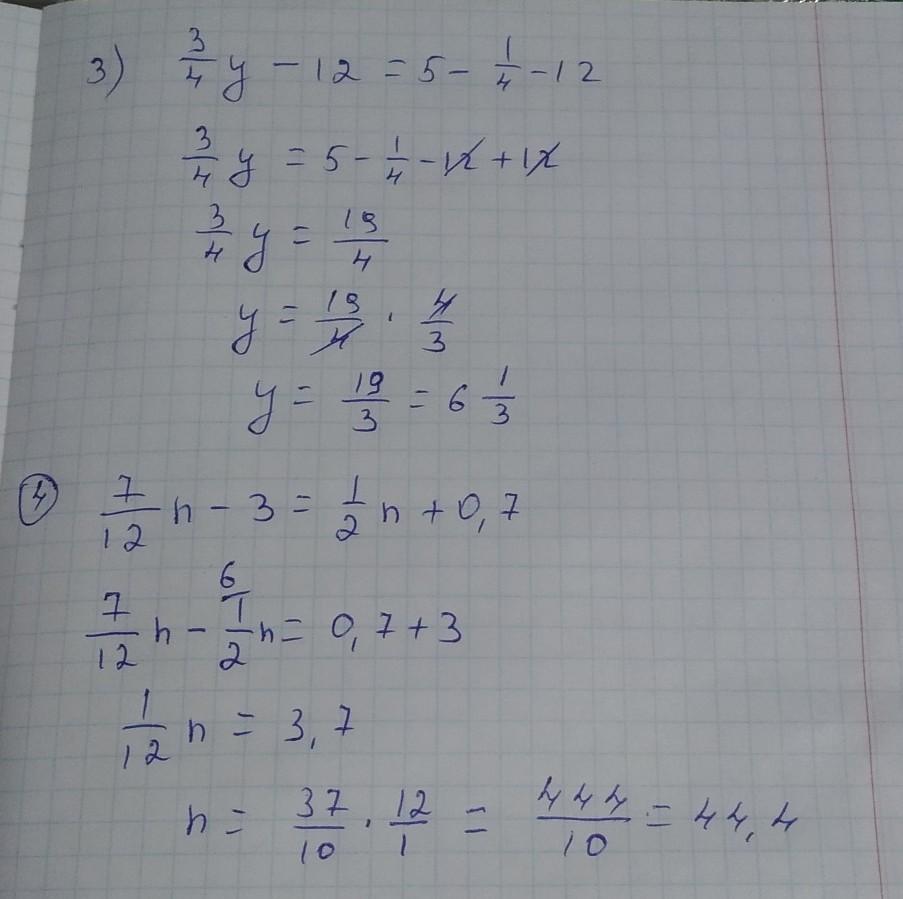 3) 3/4 y - 12 = 5 - 1/4 - 12
3/4 y = 5 - 1/4 - 12 + 12
3/4 y = 19/4
y = 19/4 · 4/3
y = 19/3 = 6 1/3
4 7/12 n - 3 = 1/2 n + 0,7
7/12 n - 6/ 1/2 n = 0,7 + 3
1/12 n = 3,7
n = 37/10 · 12/1 = 444/10 = 44,4